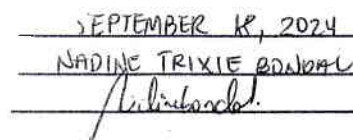 SEPTEMBER 18, 2024
NADINE TRIXIE BONDAL